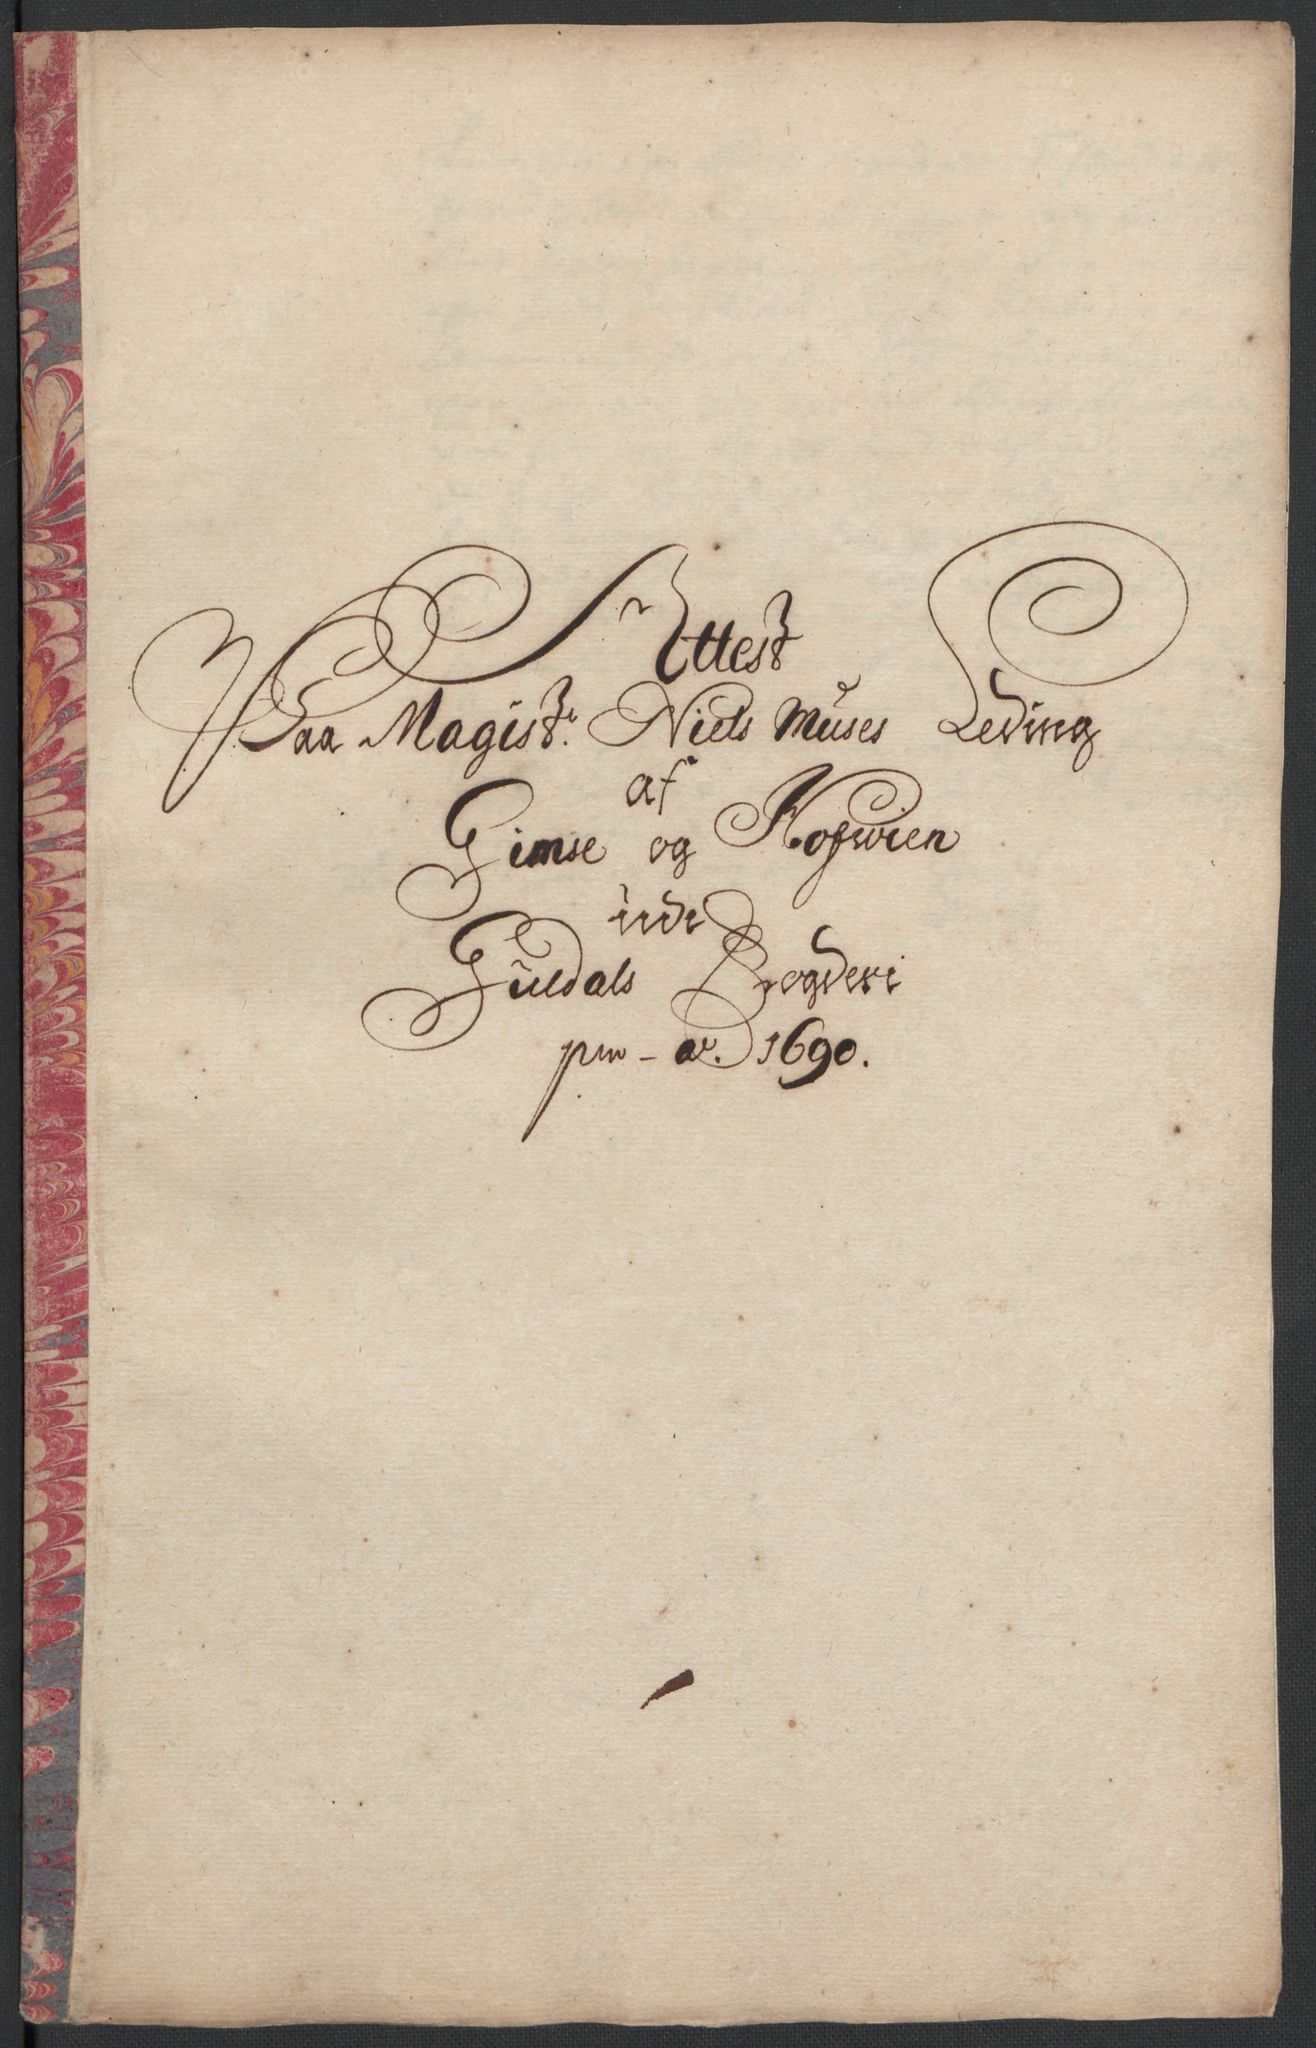 Attest
Paa Magistr. Niels Muses Leding
af
Gimse og Hofwien
udi
Guldals Fogderi
pro ao. 1690.